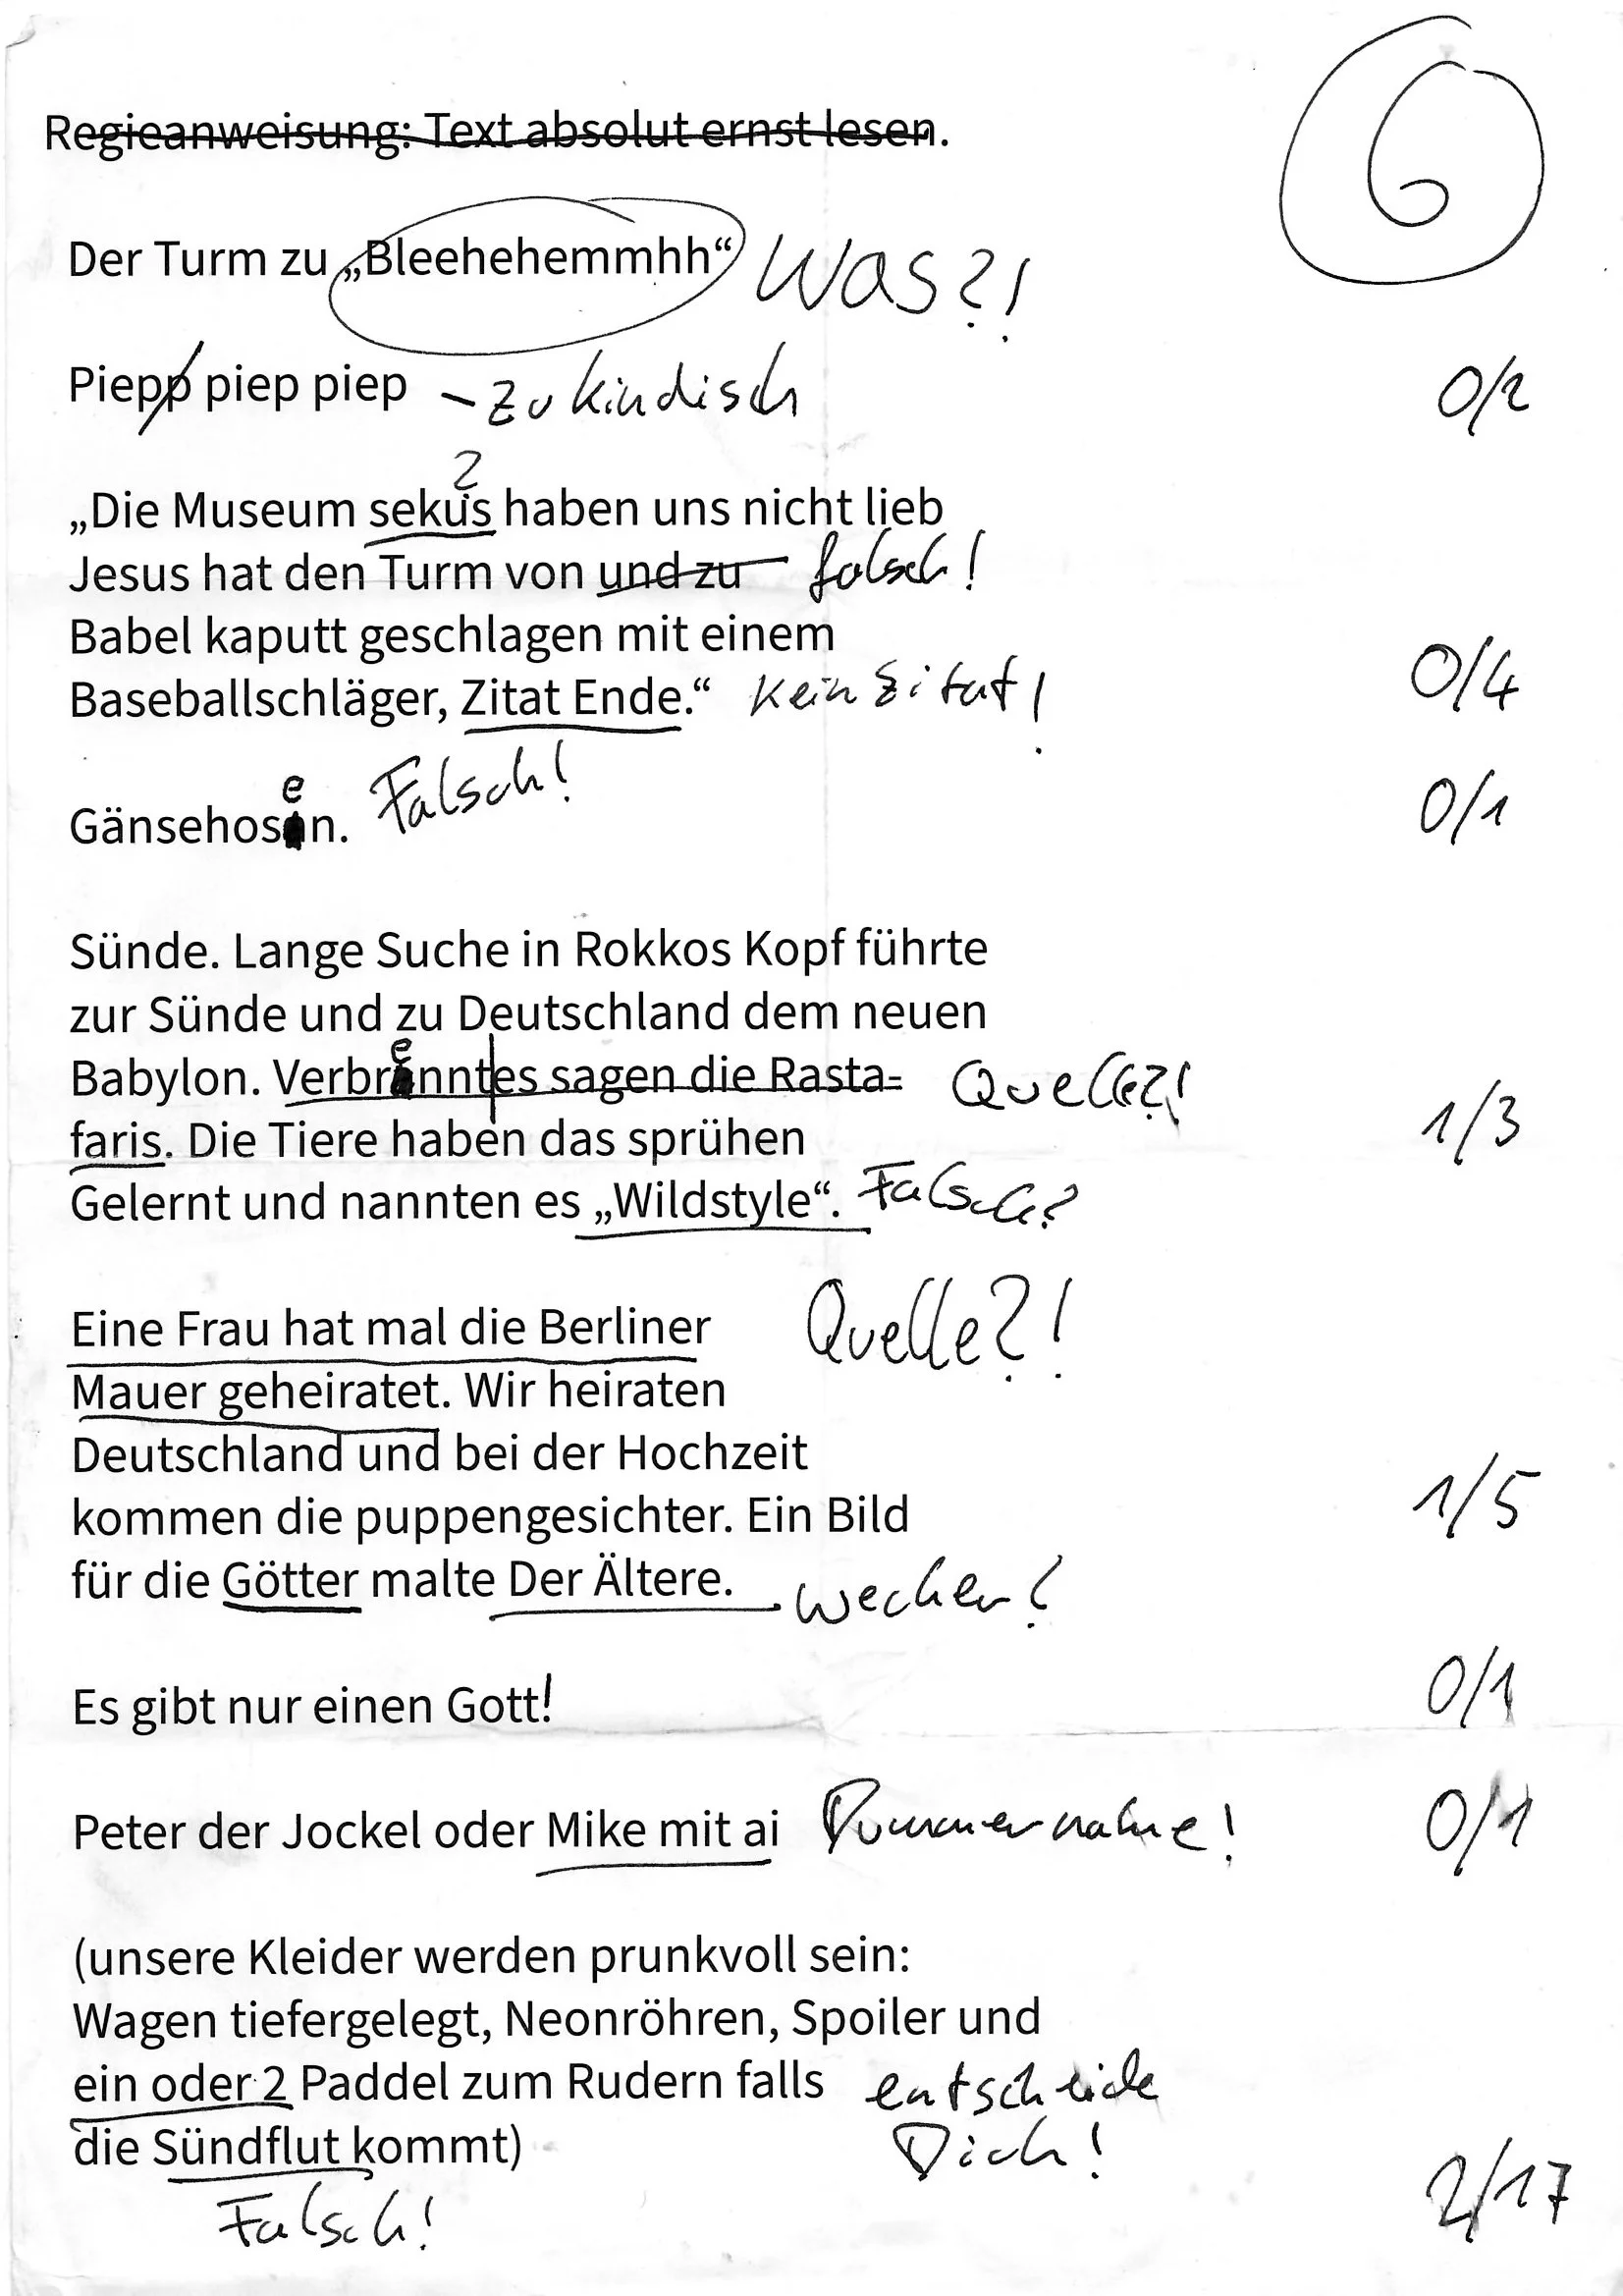 6
Regieanweisung: Text absolut ernst lesen.
Der Turm zu „Bleehehemmhh“ Was?!
Piepp piep piep – zu kindisch 0/2
?
„Die Museum sekus haben uns nicht lieb
Jesus hat den Turm von und zu falsch!
Babel kaputt geschlagen mit einem
Baseballschläger, Zitat Ende.“ kein Zitat! 0/4
e
Gänsehosn. Falsch! 0/1
Sünde. Lange Suche in Rokkos Kopf führte
zur Sünde und zu Deutschland dem neuen
e
Babylon. Verbrenntes sagen die Rasta- Quelle?!
faris. Die Tiere haben das sprühen 1/3
Gelernt und nannten es „Wildstyle“. Falsch?
Eine Frau hat mal die Berliner Quelle?!
Mauer geheiratet. Wir heiraten
Deutschland und bei der Hochzeit
kommen die puppengesichter. Ein Bild 1/5
für die Götter malte Der Ältere. Welcher?
Es gibt nur einen Gott! 0/1
Peter der Jockel oder Mike mit ai 0/1
(unsere Kleider werden prunkvoll sein:
Wagen tiefergelegt, Neonröhren, Spoiler und
ein oder 2 Paddel zum Rudern falls entscheide
die Sündflut kommt) Dich!
Falsch! 2/17